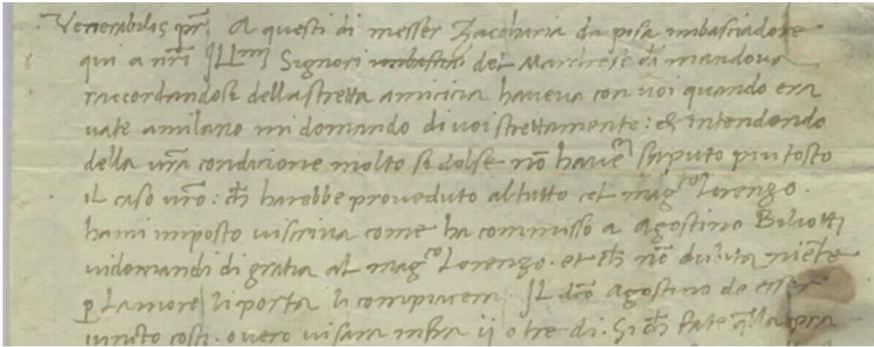 Venerabilis pr̄ A questi di messer Zaccharia da pisa imbasciadore
qui a nr̄i Illmi Signori imbascia del Marchese di mandova
raccordandosi della stretta amicicia haveva con voi quando era
vate a milano mi domando di voi strettamente: et intendendo
della vrā condicione molto si dolse nō havē saputo piu tosto
il caso vrō: ch̄ harebbe proveduto al tutto col magco Lorenzo.
hami imposto vi scriva come ha commisso a Agostino Biliotti
vi domandi di gratia al magco Lorenzo. et ch̄ nō dubita niēte
p̱ lamore li porta li compiacera. Il dc̄o Agostino de esser
iuncto costi. overo vi sara infra ii o tre di. Si ch̄ fate qlla opra